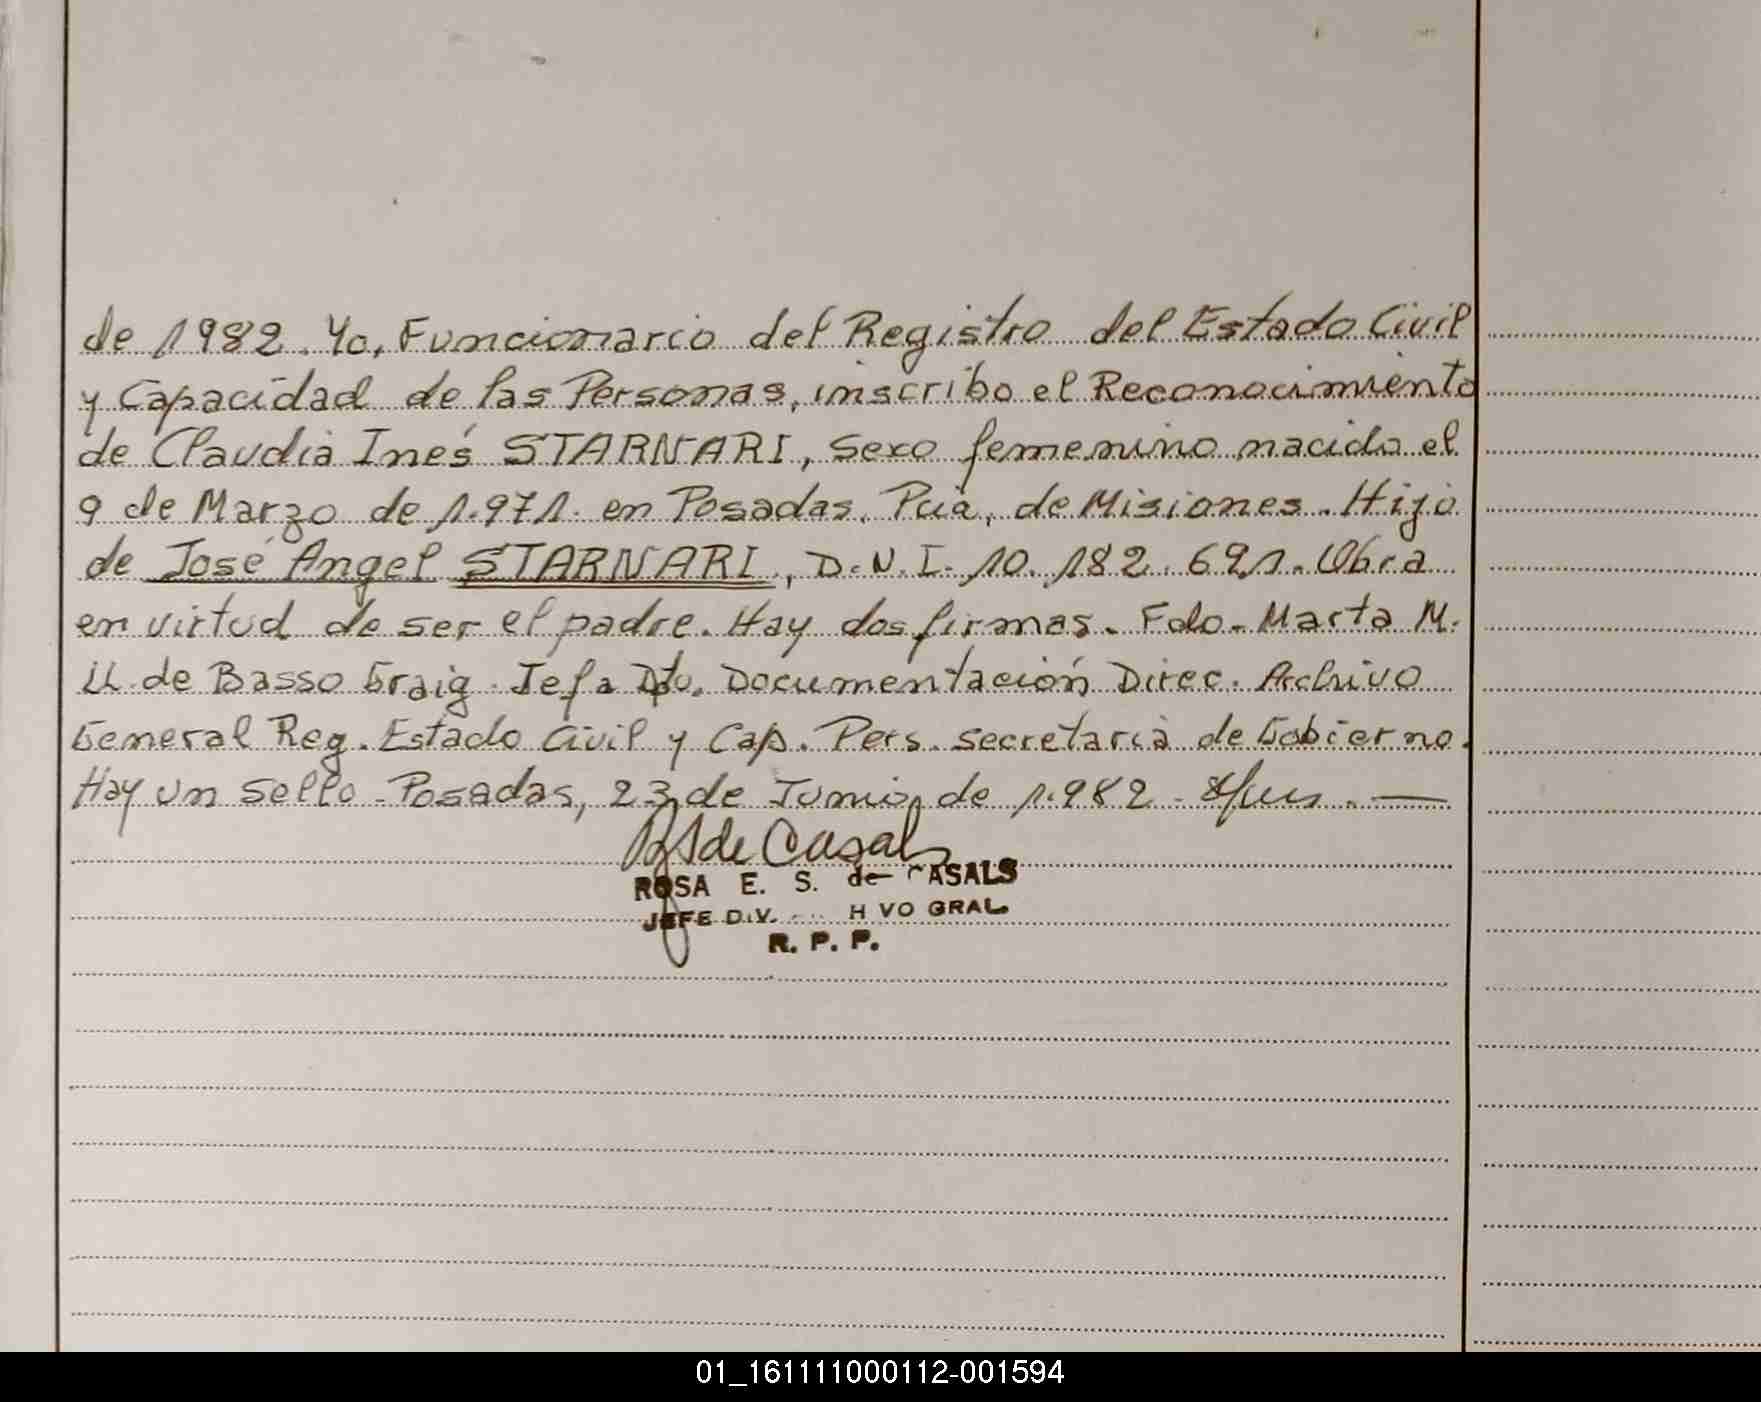 de 1982. Yo, Funcionario del Registro del Estado Civil
y Capacidad de las Personas, inscribo el Reconocimiento
de Claudia Inés STARNARI, sexo femenino nacida el
9 de Marzo de 1.971. en Posadas. Pcia, de Misiones. Hijo
de José Angel STARNARI, D.N.I. 10.182.691. Obra
en virtud de ser el padre. Hay dos firmas. Fdo. Marta M.
U. de Basso Graig. Jefa Dpto. Documentación Direc. Archivo
General Reg. Estado Civil y Cap. Pers. secretaria de Gobierno.
Hay un sello. Posadas, 23 de Junio de 1.982.
de Casals
ROSA E. S. de CASALS
JEFE DIV. H VO GRAL.
R. P. P.
01_161111000112-001594